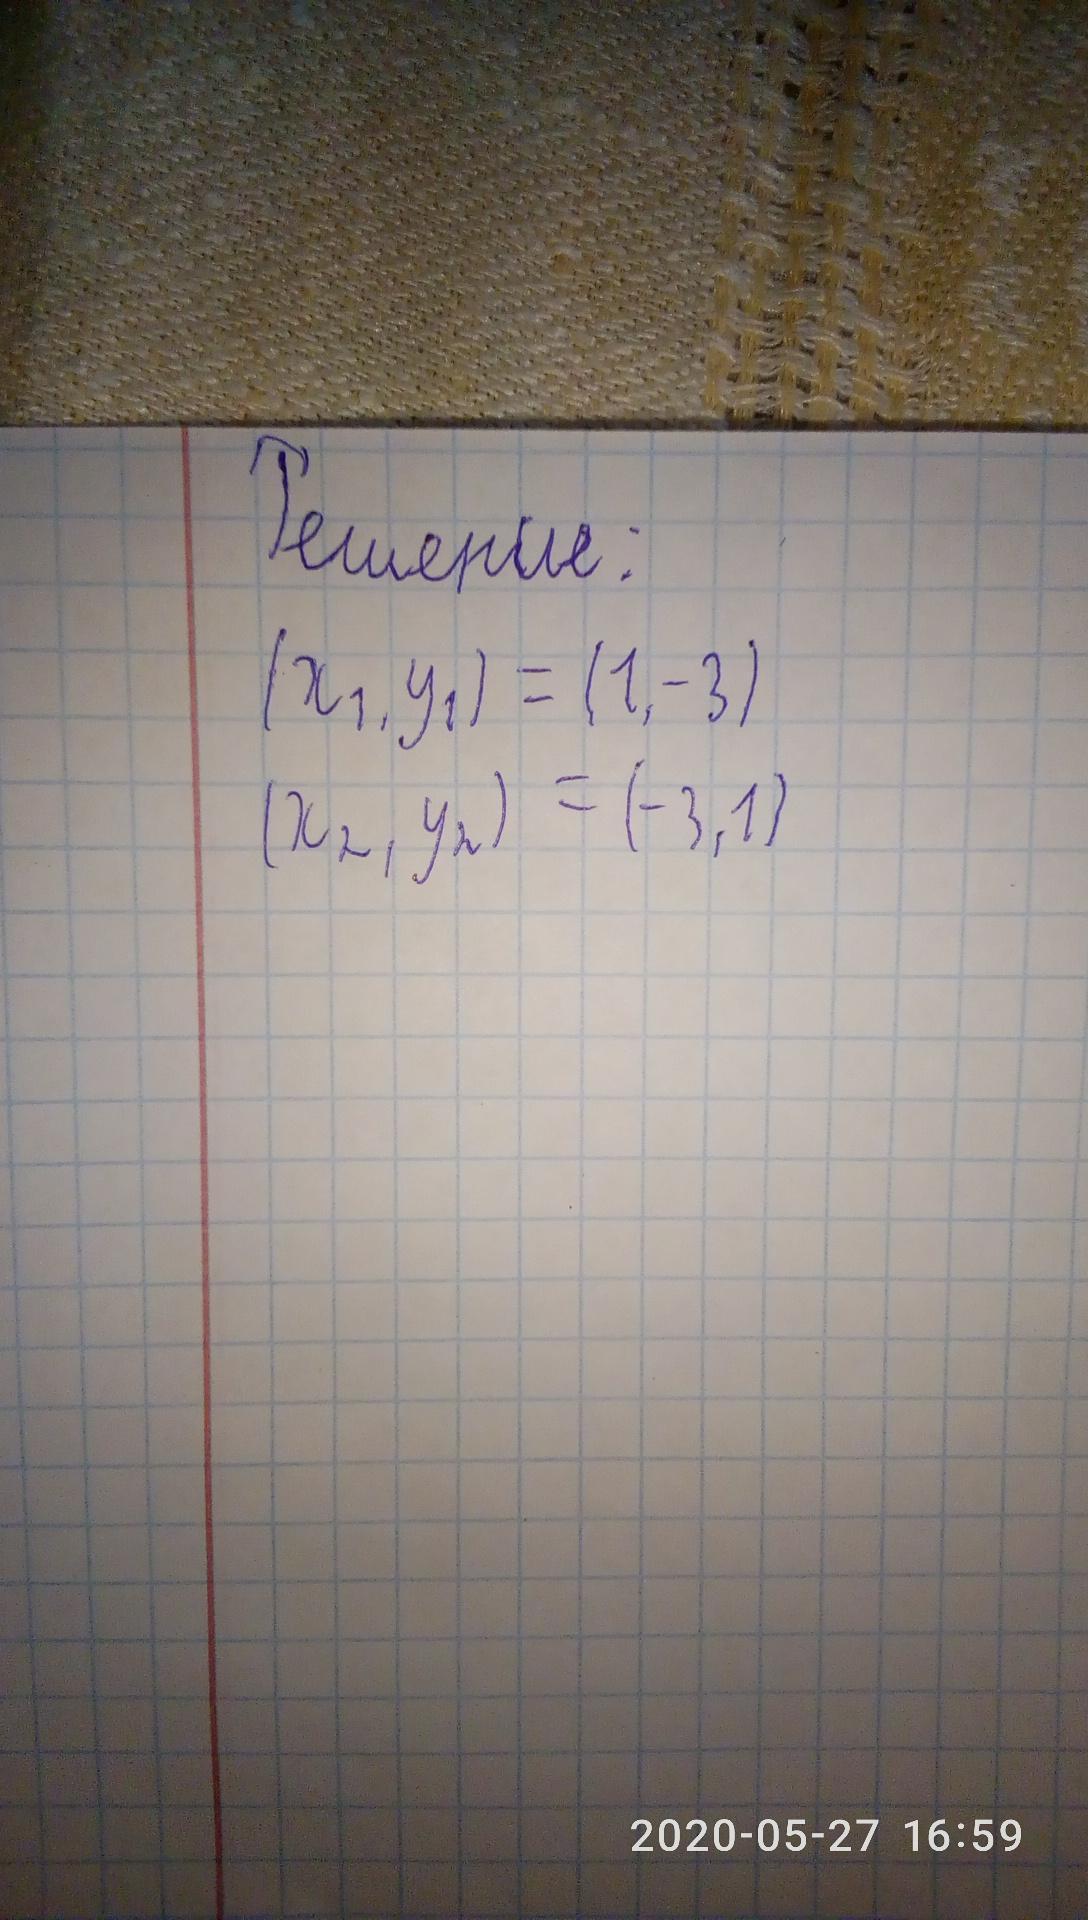 Решение:
(x₁, y₁) = (1, -3)
(x₂, y₂) = (-3, 1)
2020-05-27 16:59